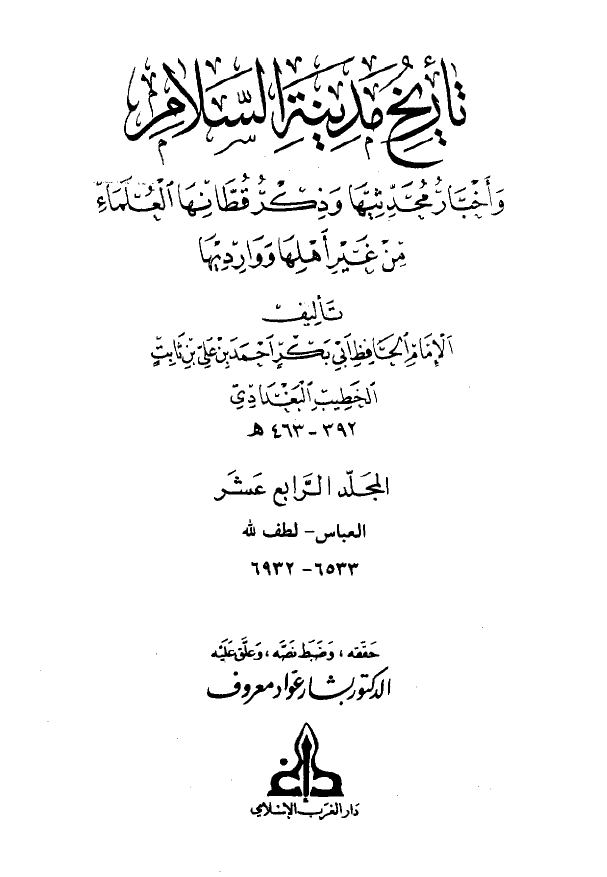 تأريخ مدينة السلام
وأخبار محدثيها وذكر قطانها العلماء
من غير أهلها ووارديها
تأليف
الإمام الحافظ أبي بكر أحمد بن علي بن ثابت
الخطيب البغدادي
٣٩٢ - ٤٦٣ هـ
المجلد الرابع عشر
العباس - لطف لله
٦٥٣٣ - ٦٩٣٢
حققه، وضبط نصه، وعلق عليه
الدكتور بشار عواد معروف
دار الغرب الإسلامي